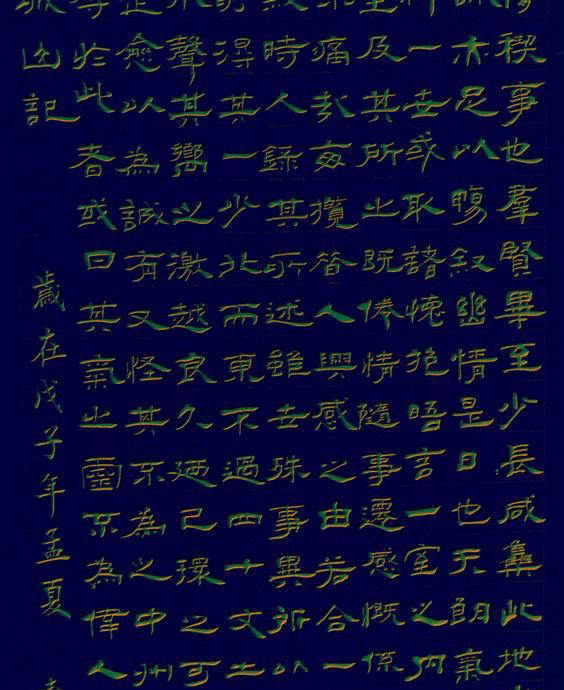 禊事也羣賢畢至少長咸集此地
亦足以暢叙幽情是日也天朗氣
一世或取諸懷抱晤言一室之內
及其所之既倦情隨事遷感慨係
痛哉每攬昔人興感之由若合一
時人錄其所述雖世殊事異所以
得其一少北而東不過四十丈土
聲其嚮之激越良久廼已環之可
愈以為誠有又怪其不為之中州
於此者或曰其氣之靈不為偉人
山記
歲在戊子年孟夏